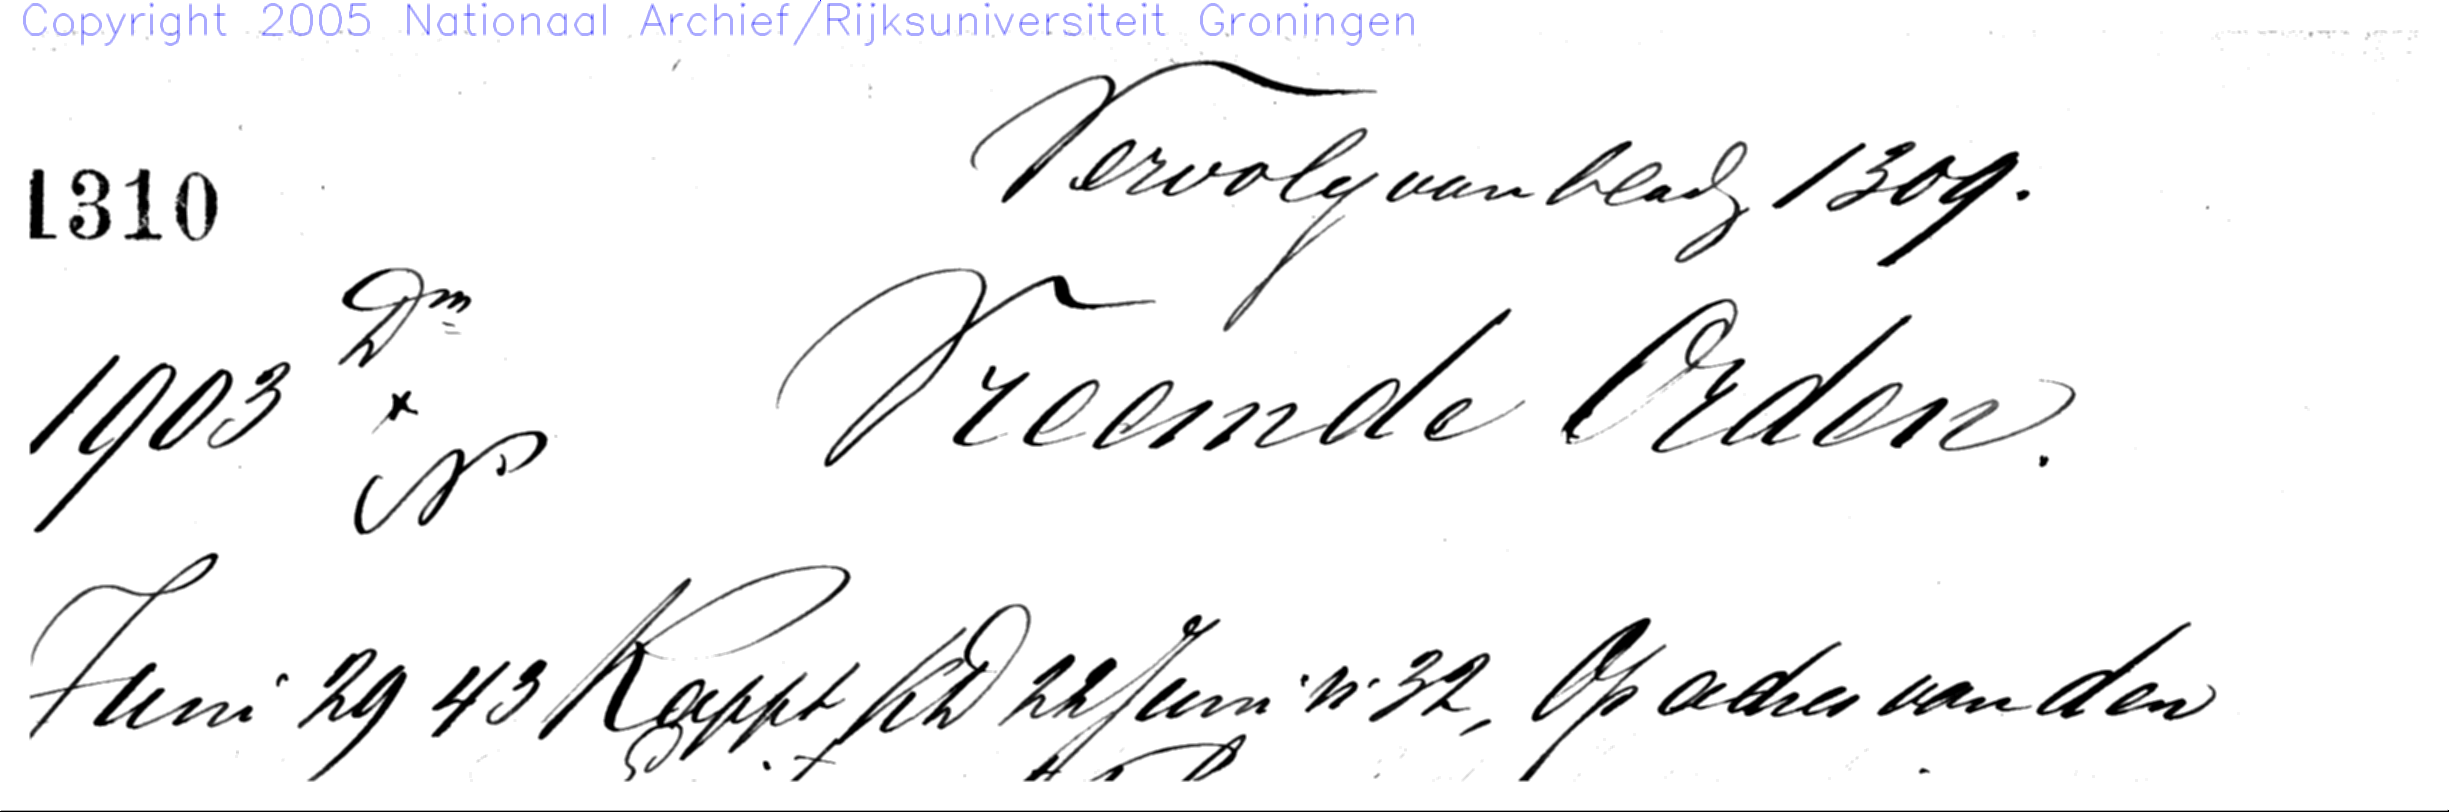 Copyright 2005 Nationaal Archief/Rijksuniversiteit Groningen
Vervolg van bladz 1309.
1310
Dm
1903
No
Vreemde Orden.
Juni 29 43 Rappt KD 22 Juni n. 32, Op adres van den